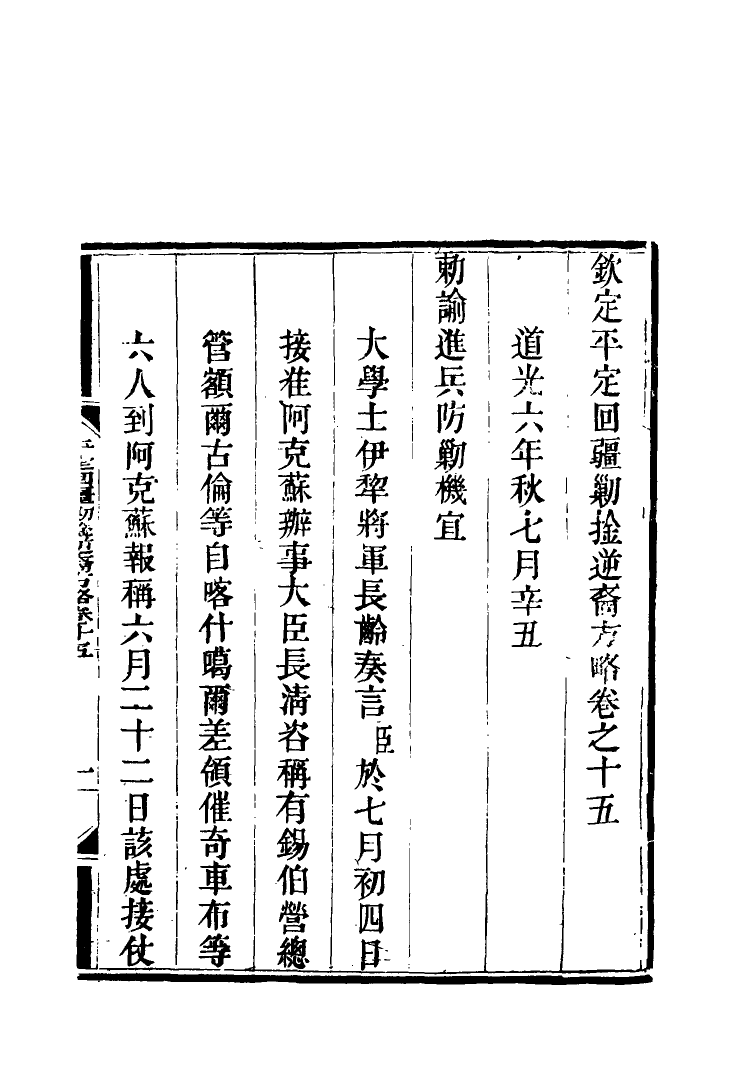 欽定平定回疆勦捡逆裔方略卷之十五
道光六年秋七月辛丑
勅諭進兵防勦機宜
大學士伊犂將軍長齡奏言臣於七月初四日
接准阿克蘇辦事大臣長淸咨稱有錫伯營總
管額爾古倫等自喀什噶爾差領催奇車布等
六人到阿克蘇報稱六月二十二日該處接仗
平定回疆勦捡逆裔方略卷十五
一